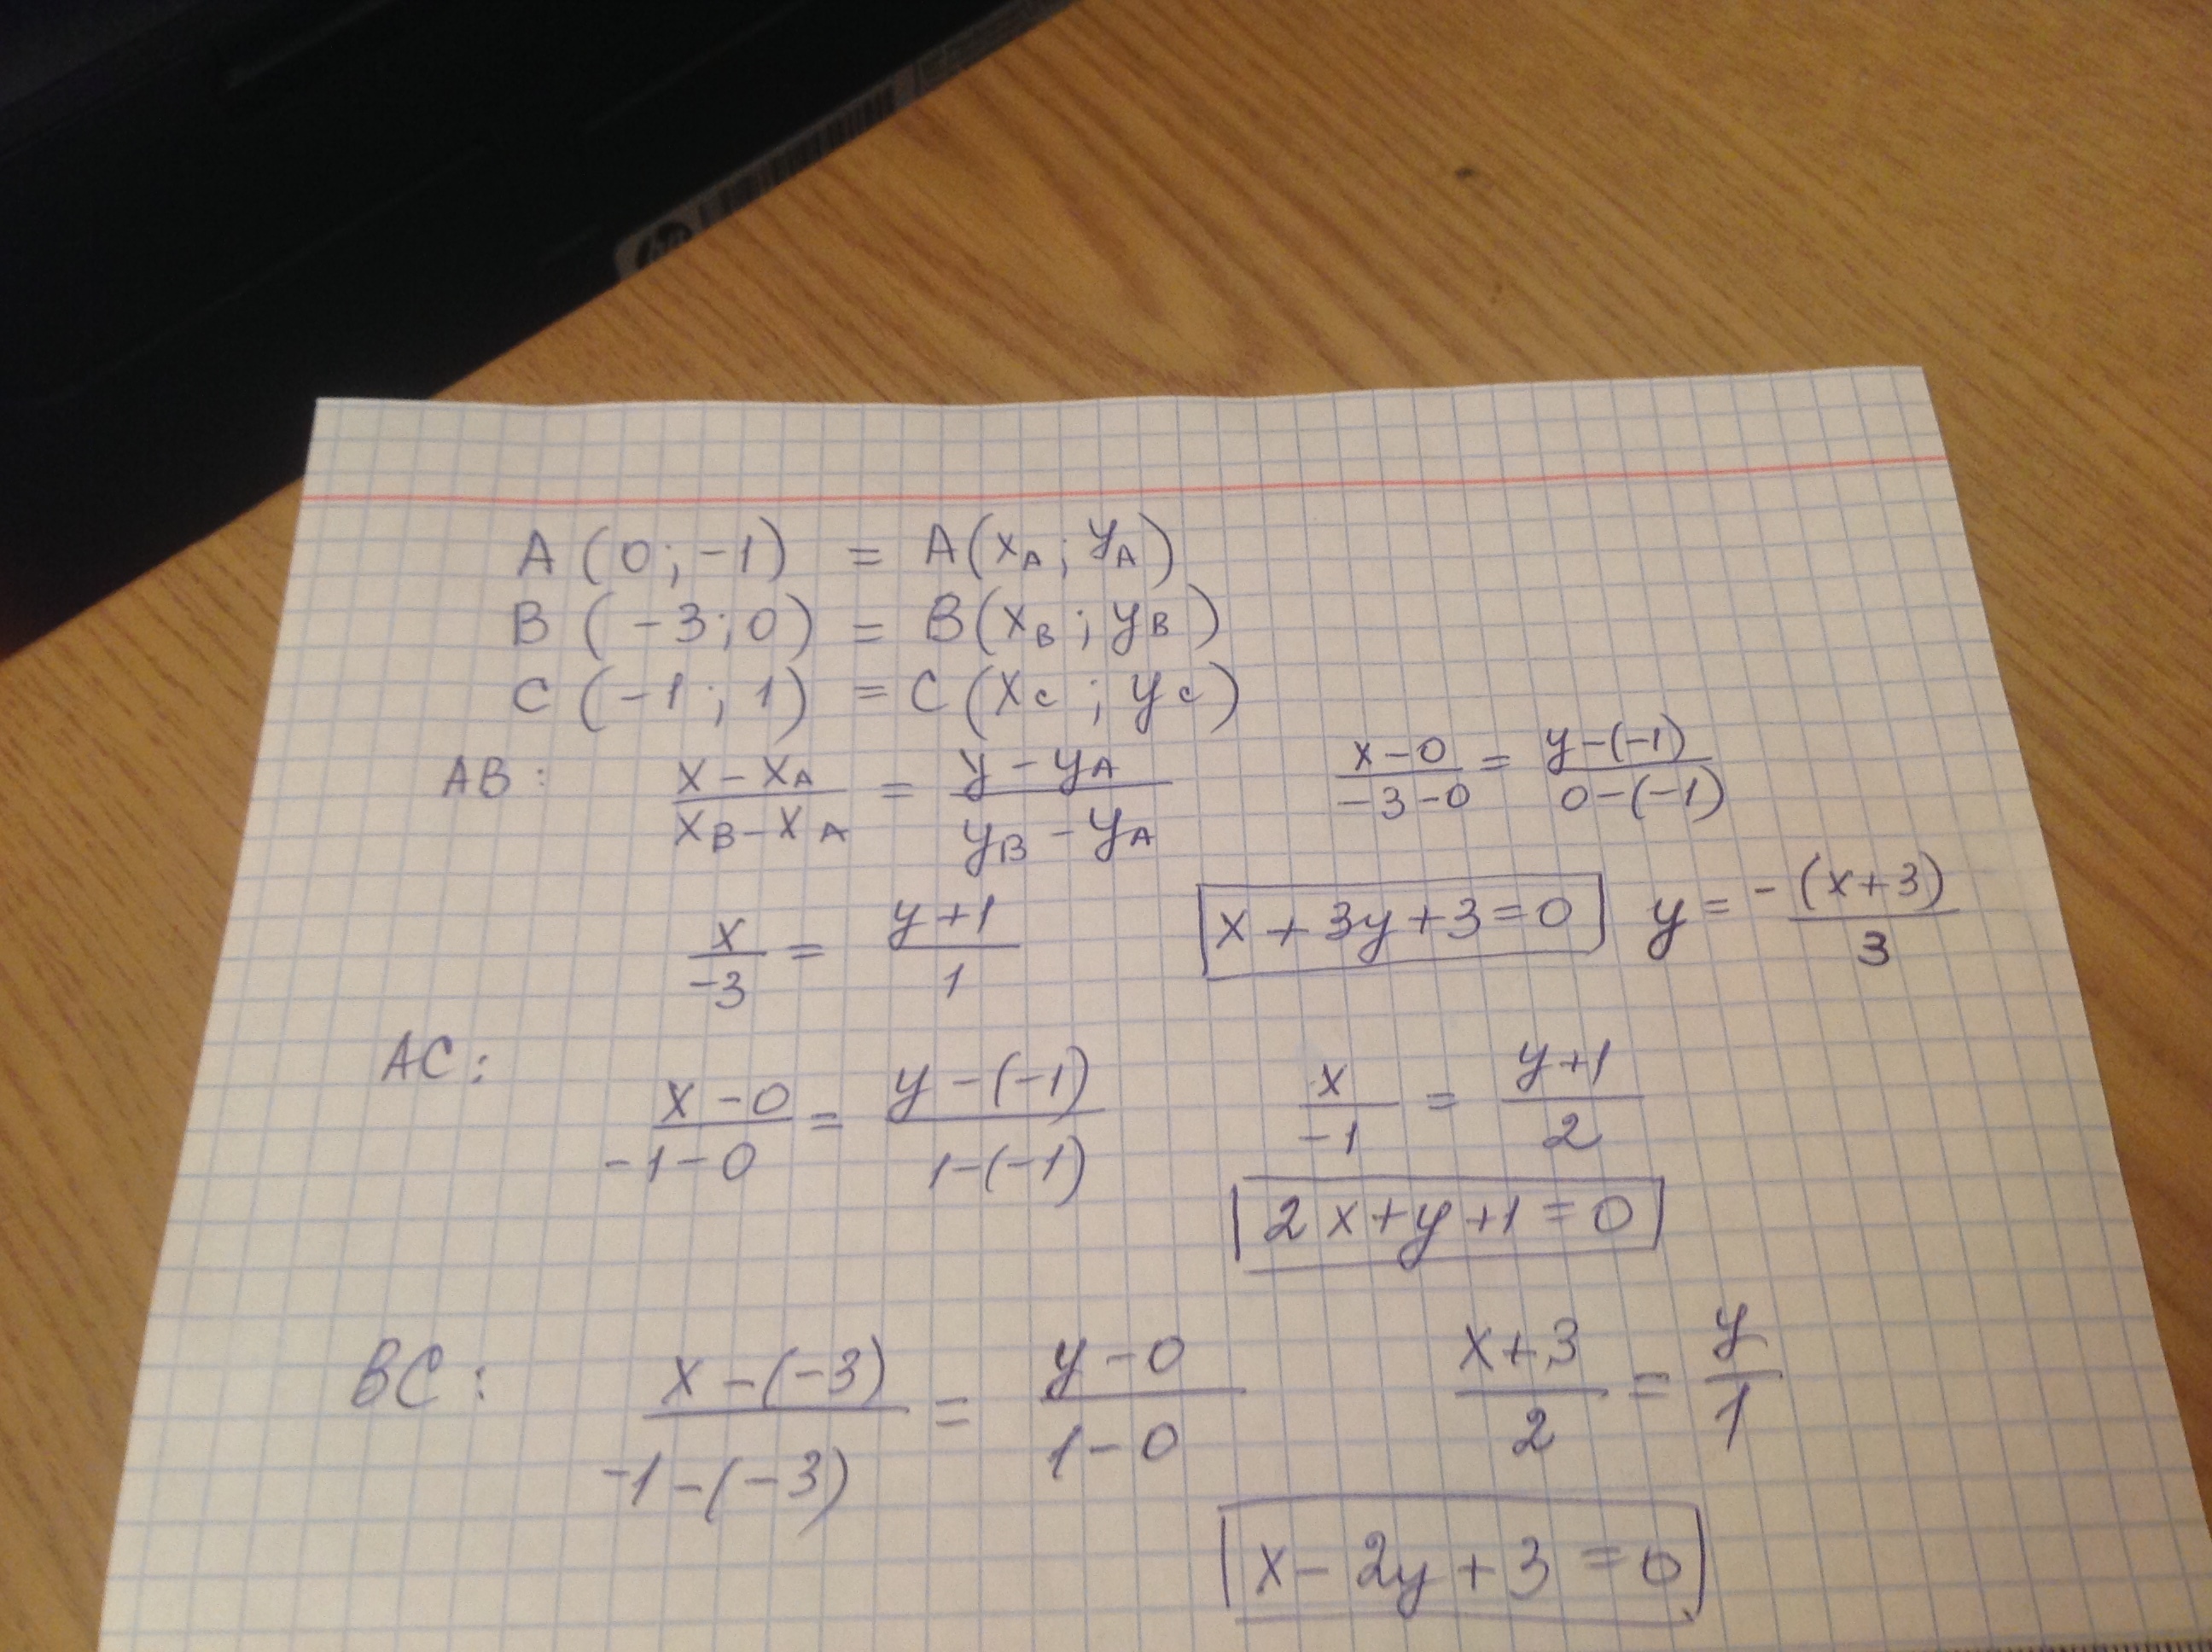 A (0; -1) = A(x_A; y_A)
B (-3; 0) = B(x_B; y_B)
C (-1; 1) = C(x_C; y_C)
AB: (x - x_A)/(x_B - x_A) = (y - y_A)/(y_B - y_A) (x-0)/(-3-0) = (y-(-1))/(0-(-1))
x/-3 = (y+1)/1 x+3y+3=0 y = -(x+3)/3
AC: (x-0)/(-1-0) = (y-(-1))/(1-(-1)) x/-1 = (y+1)/2
2x+y+1=0
BC: (x-(-3))/(-1-(-3)) = (y-0)/(1-0) (x+3)/2 = y/1
x-2y+3=0